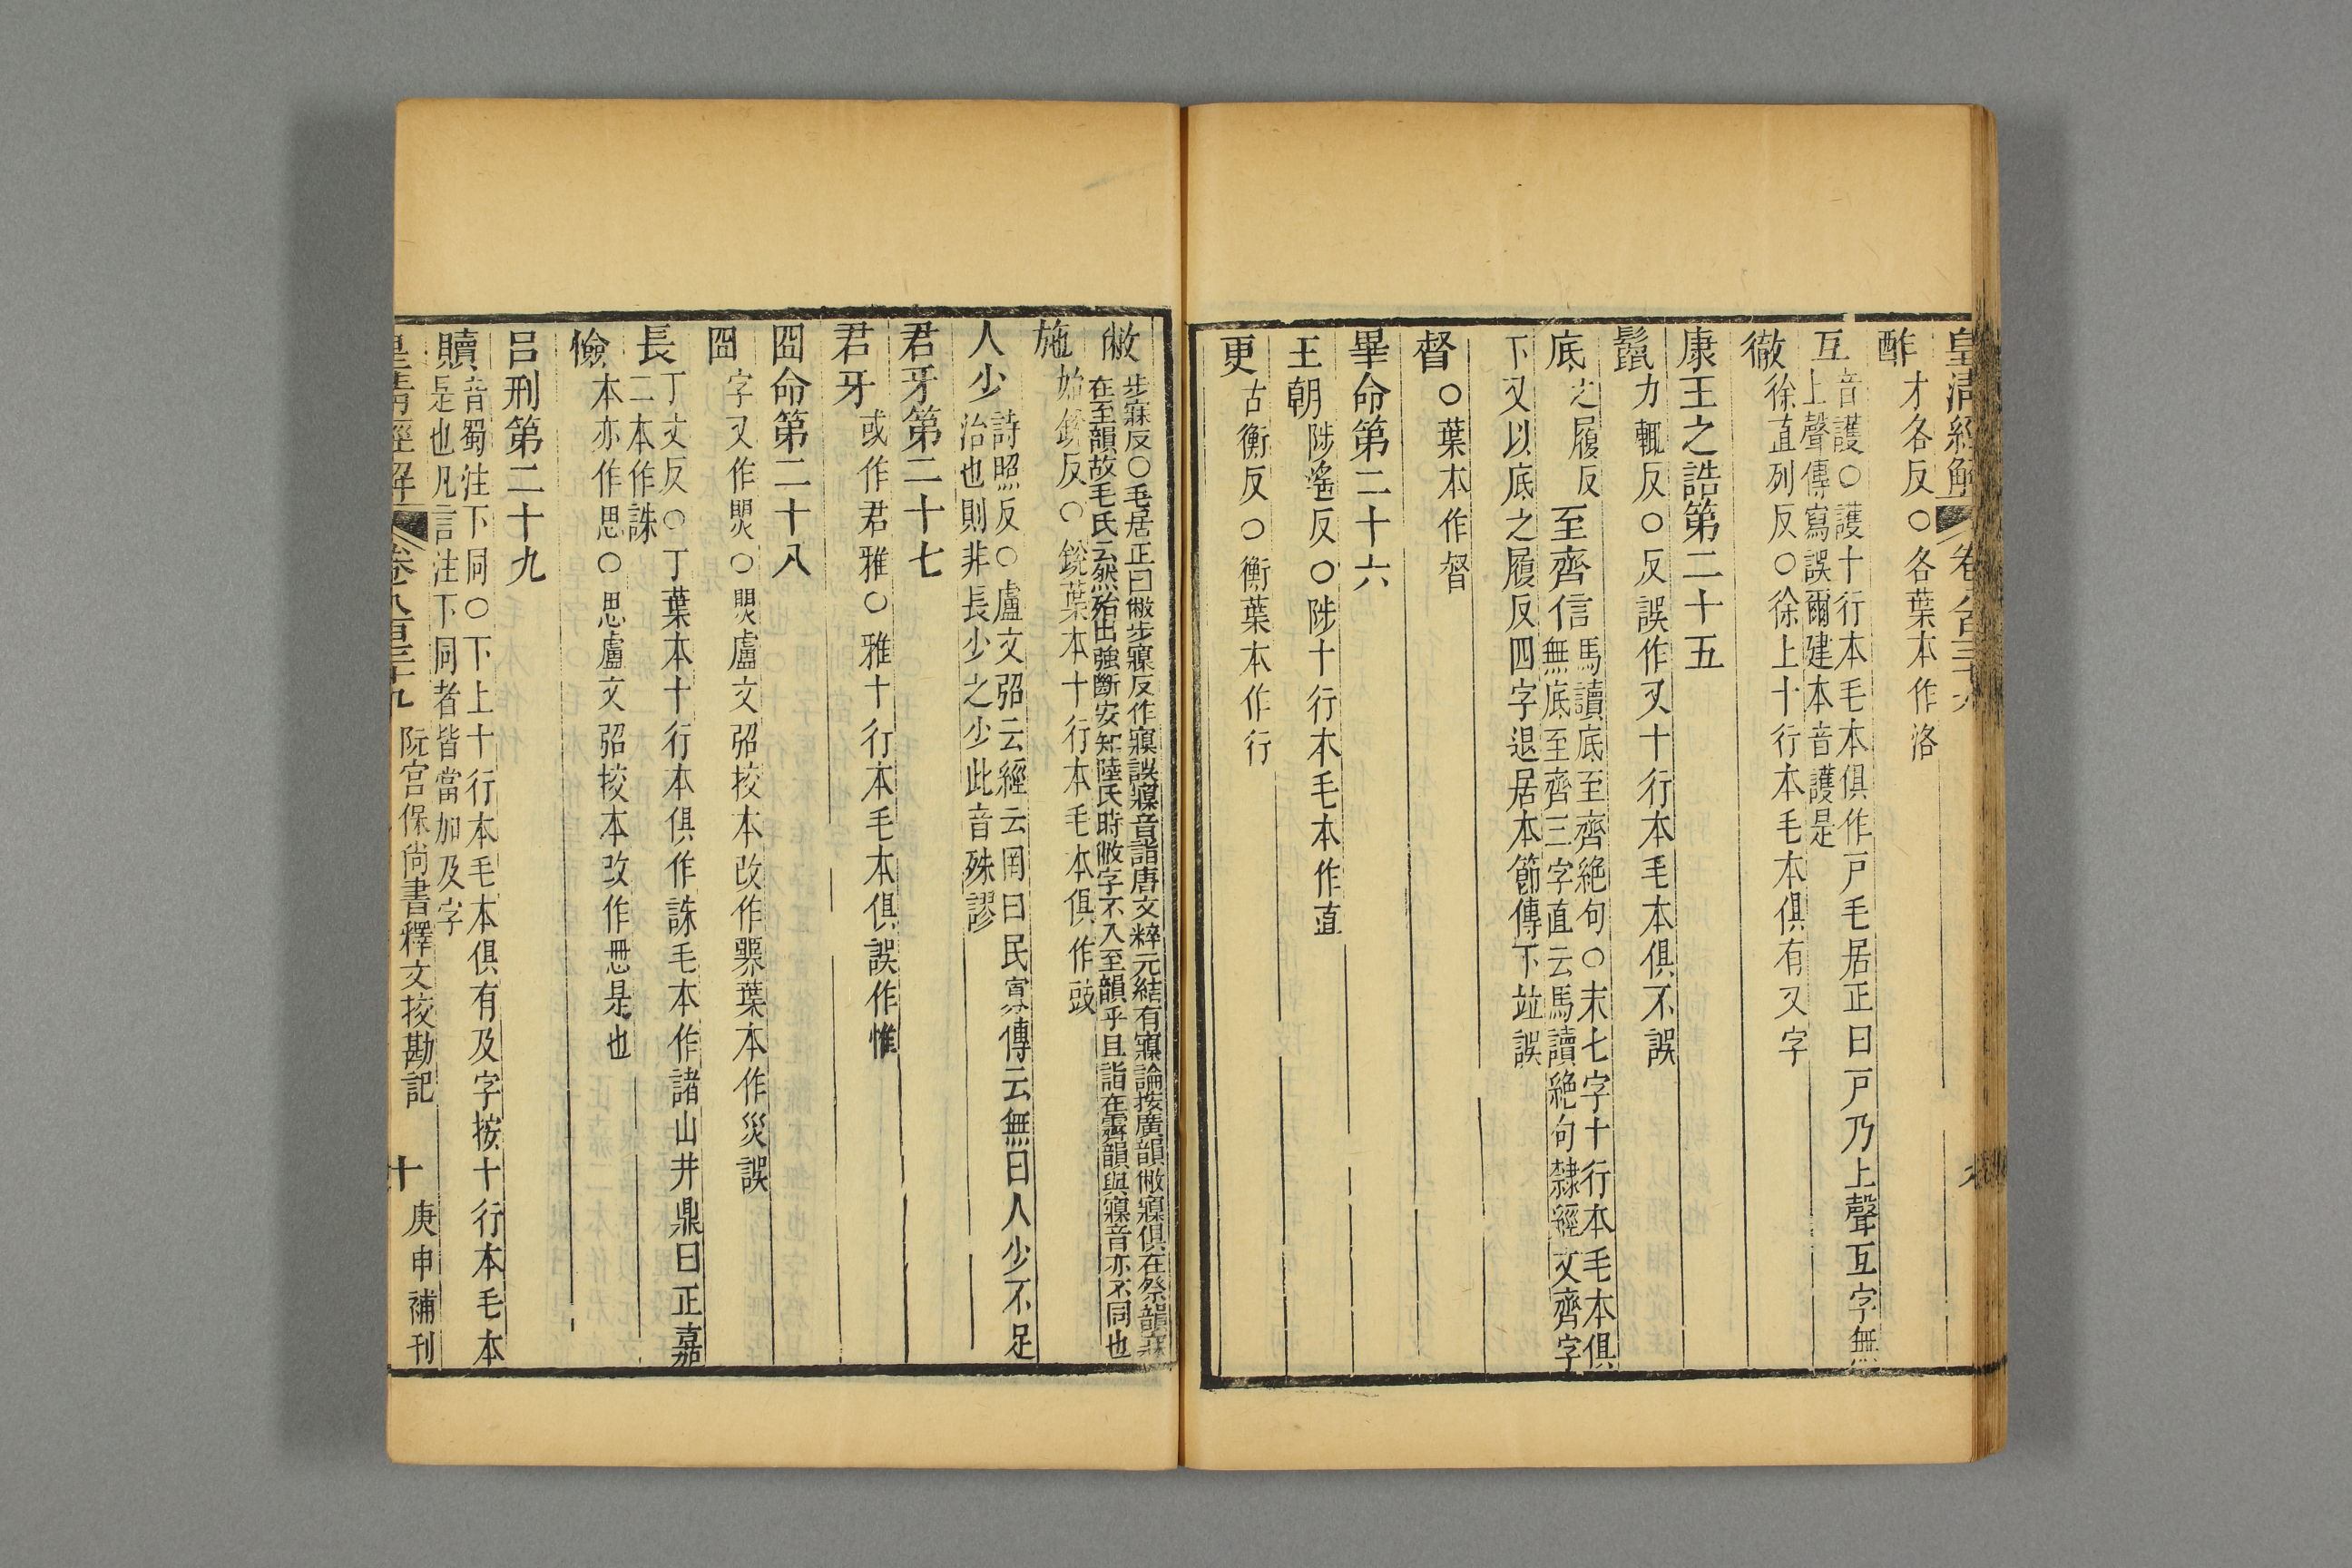 皇清經解 卷八百三十九
酢才各反○各葉本作洛
互音護○護十行本毛本俱作戸毛居正曰戸乃上聲互字無
上聲傳寫誤爾建本音護是
徹徐直列反○徐上十行本毛本俱有又字
康王之誥第二十五
鬛力輒反○反誤作叉十行本毛本俱不誤
底之履反 至齊信馬讀底至齊絶句○末七字十行本毛本俱
無底至齊三字直云馬讀絶句隸經文齊字
下又以底之履反四字退居本節傳下竝誤
督○葉本作督
畢命第二十六
王朝陟遙反○陟十行本毛本作直
更古衡反○衡葉本作行
敝步寐反○毛居正曰敝步寢反作寐誤
在至韻故毛氏云然殆出強斷安知陸氏時敝字不入至韻乎且詣在霽韻與寱音亦不同也
施始銳反○銳葉本十行本毛本俱作豉
人少詩照反○盧文弨云經云罔曰民寡傳云無曰人少不足
治也則非長少之少此音殊謬
君牙第二十七
君牙或作君雅○雅十行本毛本俱誤作惟
冏命第二十八
冏字又作煛○煛盧文弨挍本改作㷡葉本作災誤
長丁丈反○丁葉本十行本俱作誅毛本作諸山井鼎曰正嘉
二本作誅
憸本亦作思○思盧文弨挍本改作㥓是也
呂刑第二十九
贖音蜀注下同○下上十行本毛本俱有及字按十行本毛本
是也凡言注下同者皆當加及字
皇清經解 卷八百三十九 阮宮保尚書釋文挍勘記 十 庚申補刊